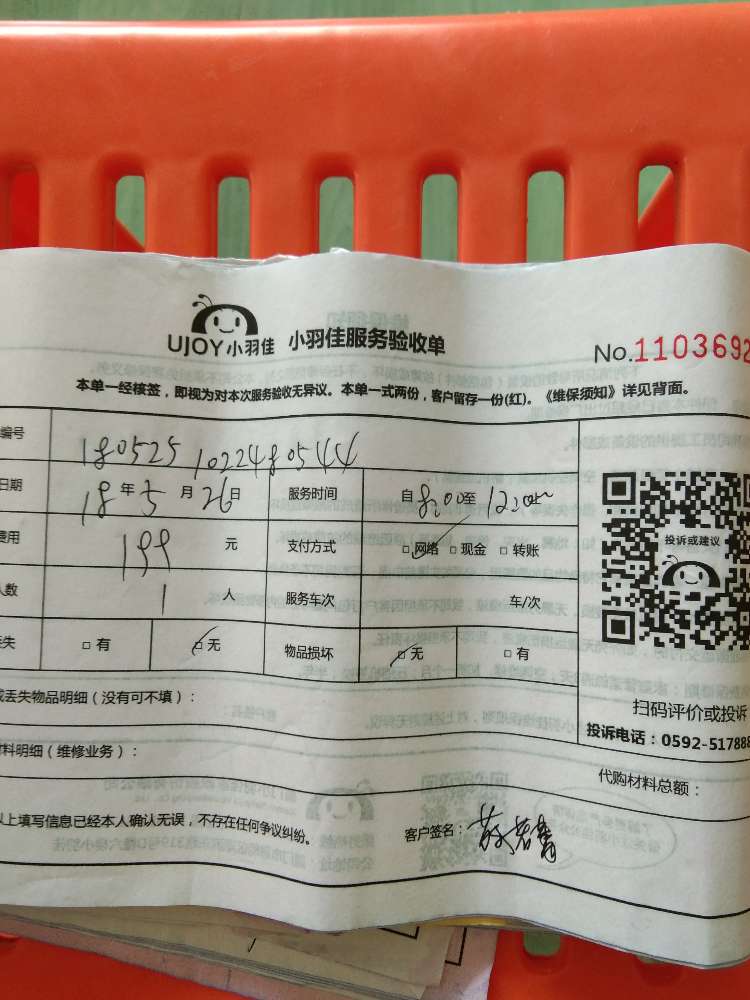 UJOY小羽佳 小羽佳服务验收单 No.1103692
本单一经核签，即视为对本次服务验收无异议。本单一式两份，客户留存一份(红)。《维保须知》详见背面。
编号 1805251022480544
日期 18年5月26日 服务时间 自8:00至12:00
费用 199 元 支付方式 □网络 □现金 □转账
人数 1 人 服务车次 车/次
丢失 □有 □无 物品损坏 □无 □有
投诉或建议
丢失物品明细（没有可不填）：
扫码评价或投诉
投诉电话：0592-517888
材料明细（维修业务）：
代购材料总额：
以上填写信息已经本人确认无误，不存在任何争议纠纷。
客户签名：